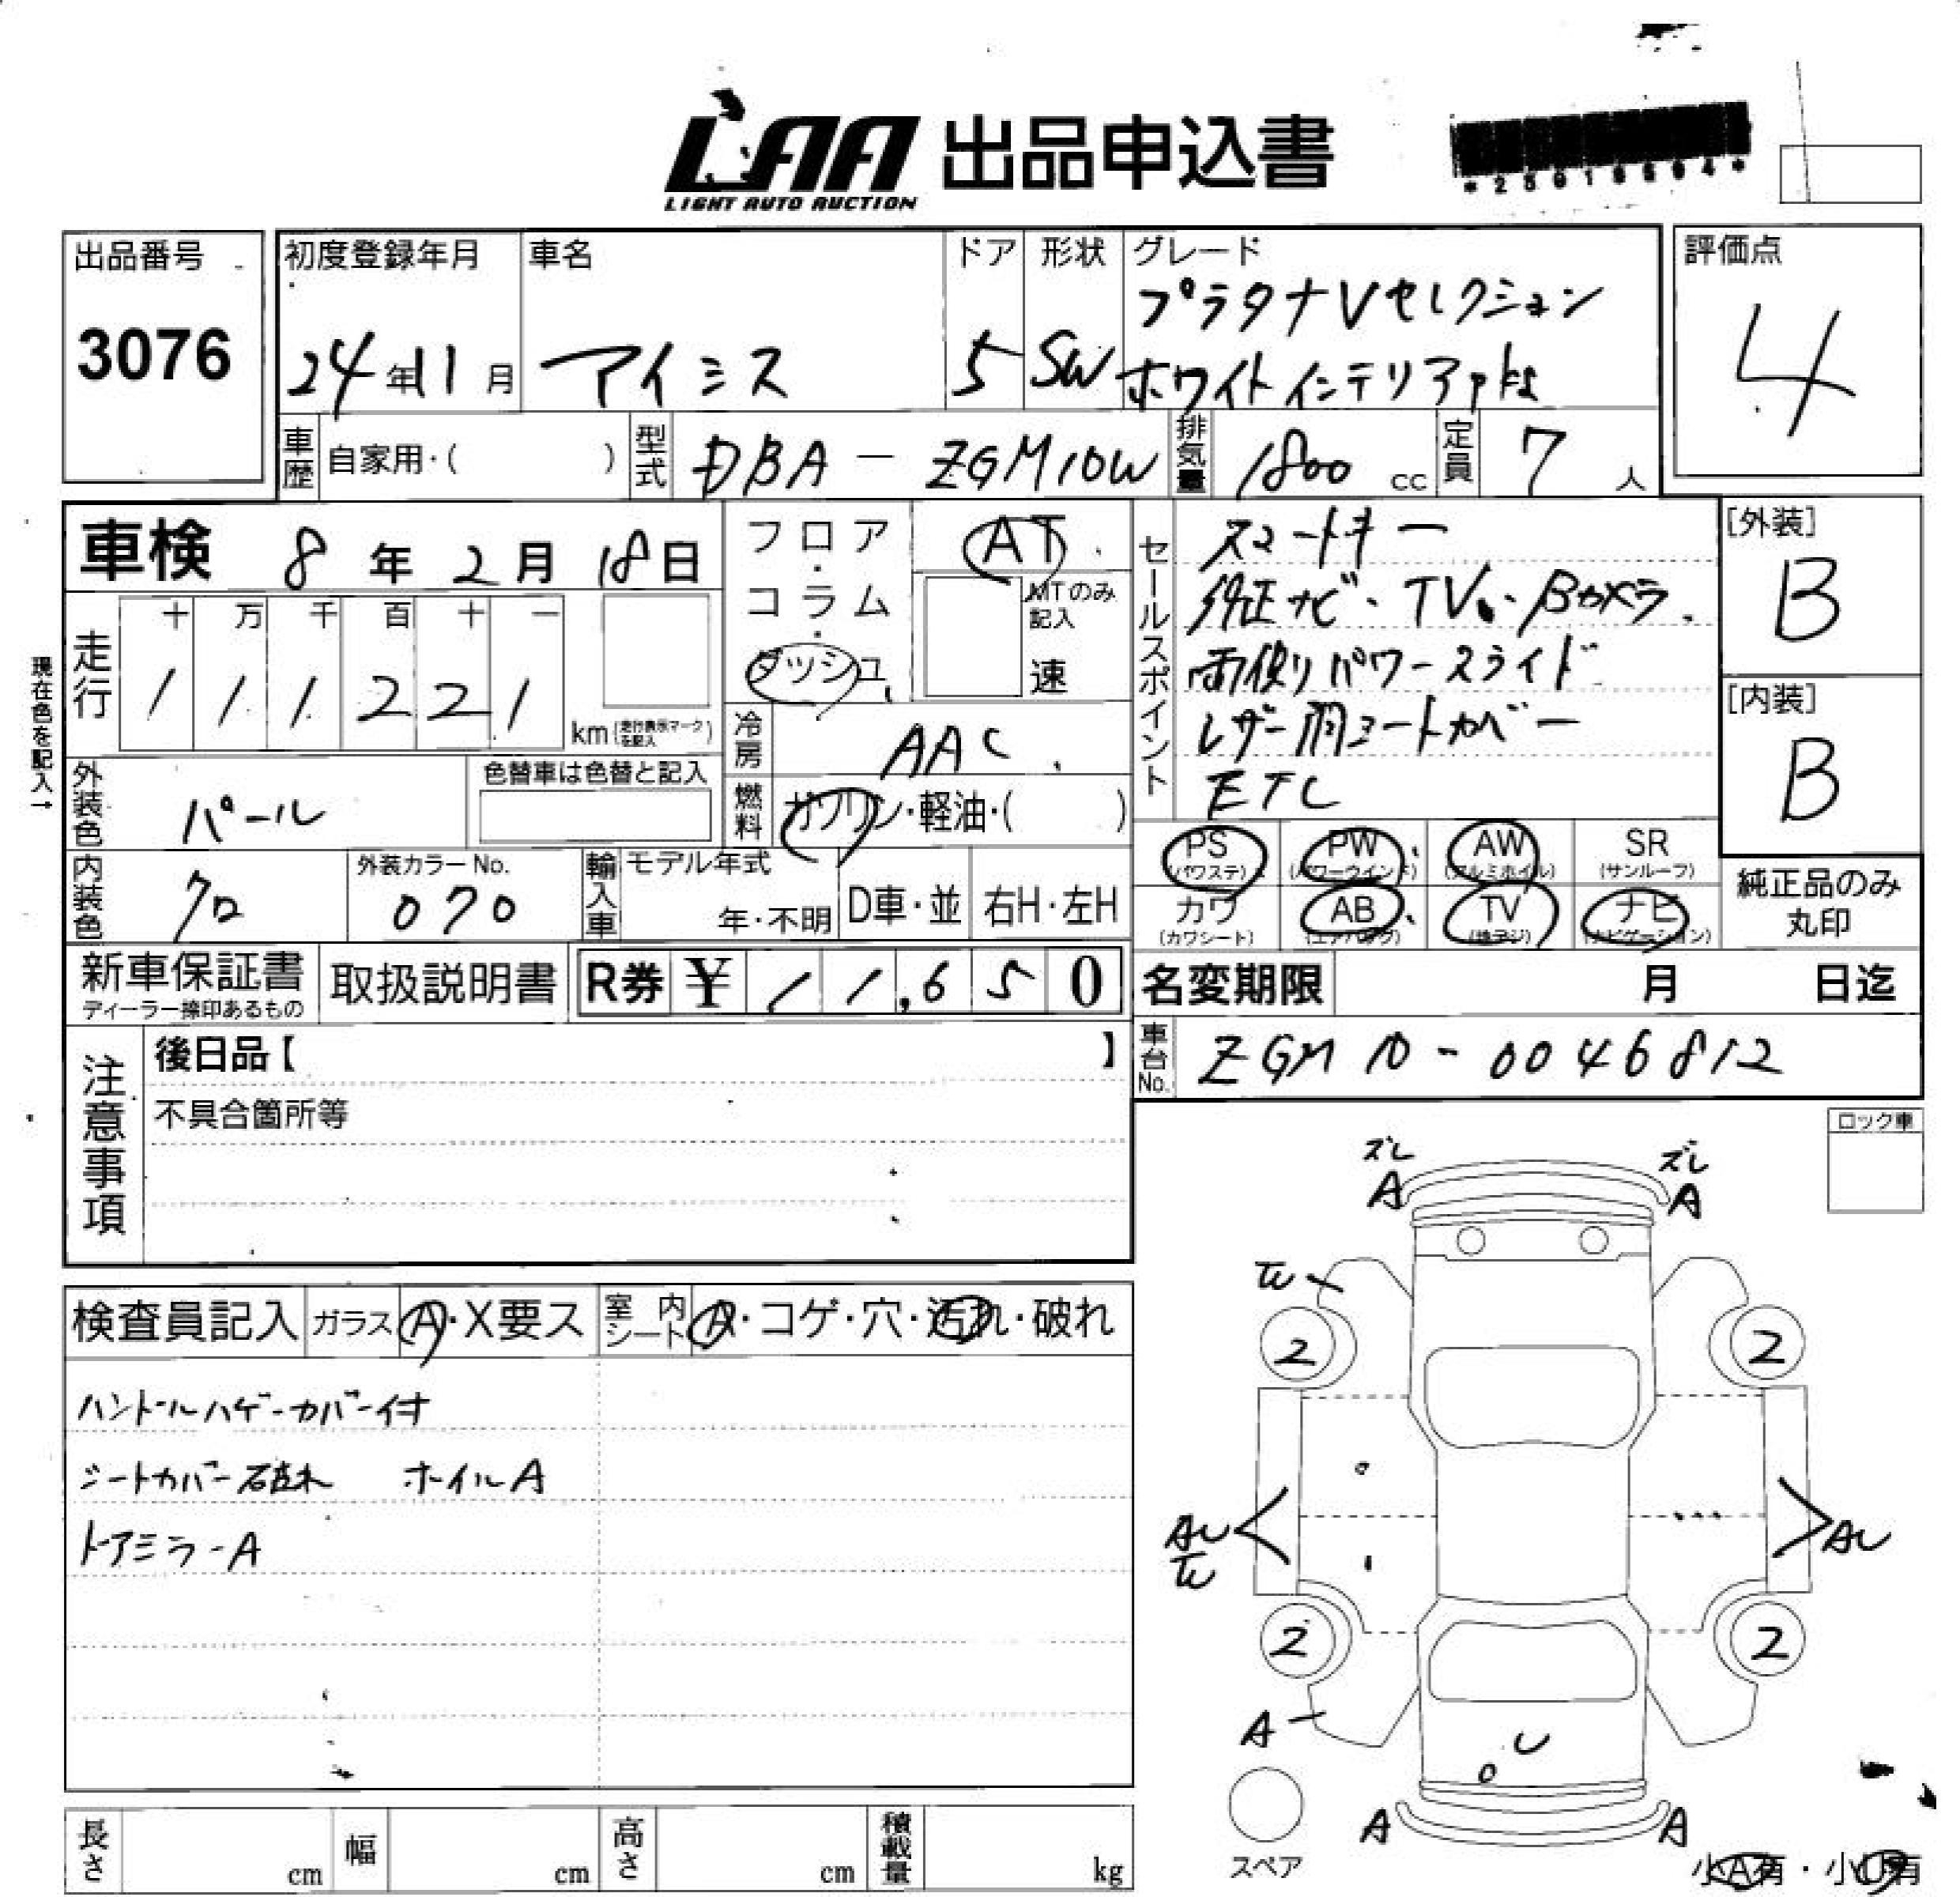 LAA 出品申込書
LIGHT AUTO AUCTION
*25018594*
出品番号
3076
初度登録年月
24年11月
車名
アイシス
ドア
5
形状
SW
グレード
プラタナVセレクション
ホワイトインテリアpkg
評価点
4
車歴 自家用・( )
型式 DBA - ZGM10W
排気量 1800 cc
定員 7 人
車検 8年2月18日
フロア・コラム・ダッシュ
AT
MTのみ記入
速
走行
十 万 千 百 十 一
1 1 1 2 2 1 km (走行表示マークを記入)
現在色を記入→
冷房 AAC
燃料 ガソリン・軽油・( )
外装色 パール
色替車は色替と記入
内装色 クロ
外装カラーNo.
070
輸入車 モデル年式
年・不明 D車・並 右H・左H
セールスポイント
スマートキー
純正ナビ・TV・Bカメラ
両側パワースライド
レザー調シートカバー
ETC
[外装]
B
[内装]
B
PS (パワステ) PW (パワーウインド) AW (アルミホイル) SR (サンルーフ)
カワ (カワシート) AB (エアバッグ) TV (地デジ) ナビ (ナビゲーション)
純正品のみ丸印
新車保証書
ディーラー捺印あるもの
取扱説明書
R券 ¥ 11,650
名変期限 月 日迄
車台No. ZGM10-0046812
注意事項
後日品【 】
不具合箇所等
ロック車
検査員記入 ガラス A・X要ス 室内シート A・コゲ・穴・汚れ・破れ
ハンドルハゲ-カバー付
シートカバー破れ ホイルA
ドアミラーA
ズレ ズレ
A A
2 2
AU AU
2 2
A
U
A A
スペア
小A有・小U有
長さ cm 幅 cm 高さ cm 積載量 kg